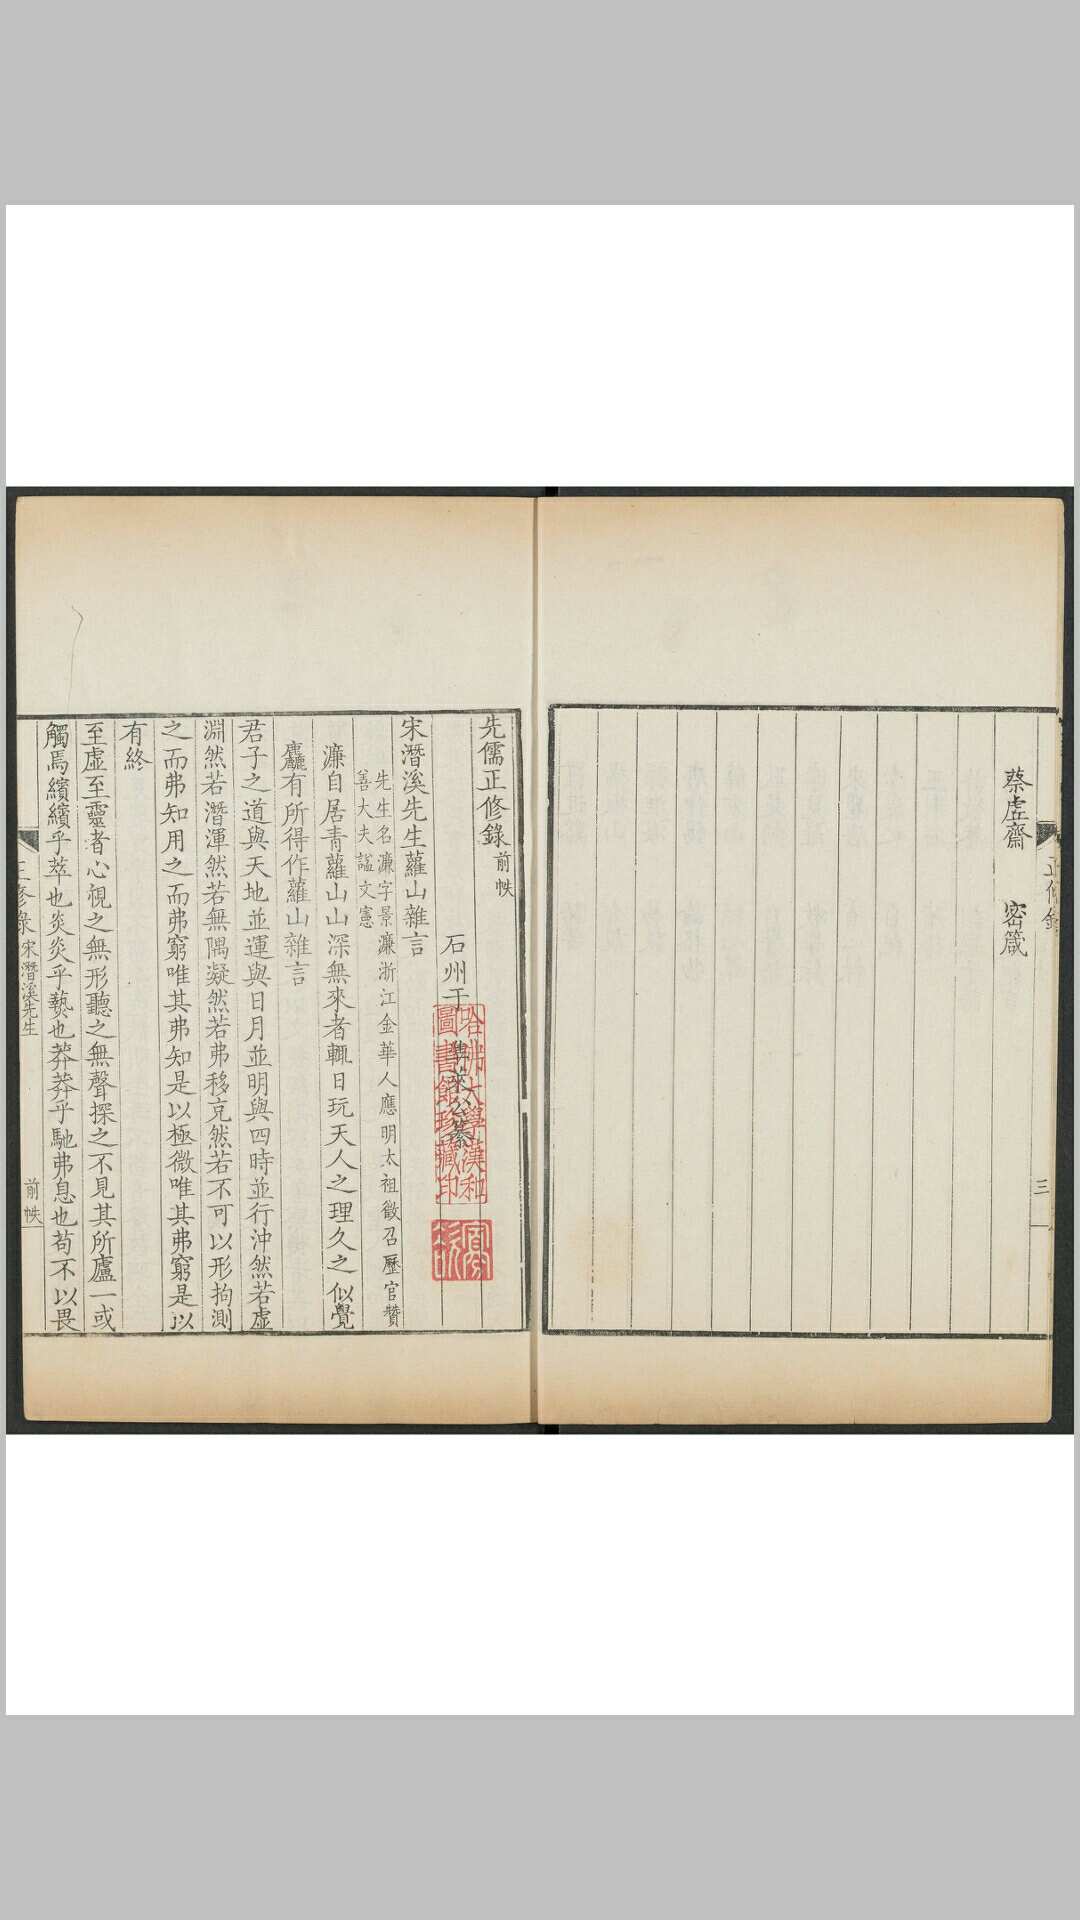 蔡虛齋 密箴
正修錄 三
先儒正修錄 前帙
石州于準萊公纂
哈佛大學漢和
圖書館珍藏印
宋潛溪先生蘿山雜言
先生名濂字景濂浙江金華人應明太祖徵召歷官贊
善大夫諡文憲
濂自居青蘿山山深無來者輒日玩天人之理久之似覺
麤有所得作蘿山雜言
君子之道與天地並運與日月並明與四時並行沖然若虛
淵然若潛渾然若無隅凝然若弗移充然若不可以形拘測
之而弗知用之而弗窮唯其弗知是以極微唯其弗窮是以
有終
至虛至靈者心視之無形聽之無聲探之不見其所廬一或
觸焉繽繽乎萃也炎炎乎爇也莽莽乎馳弗息也苟不以畏
正修錄 宋潛溪先生 前帙